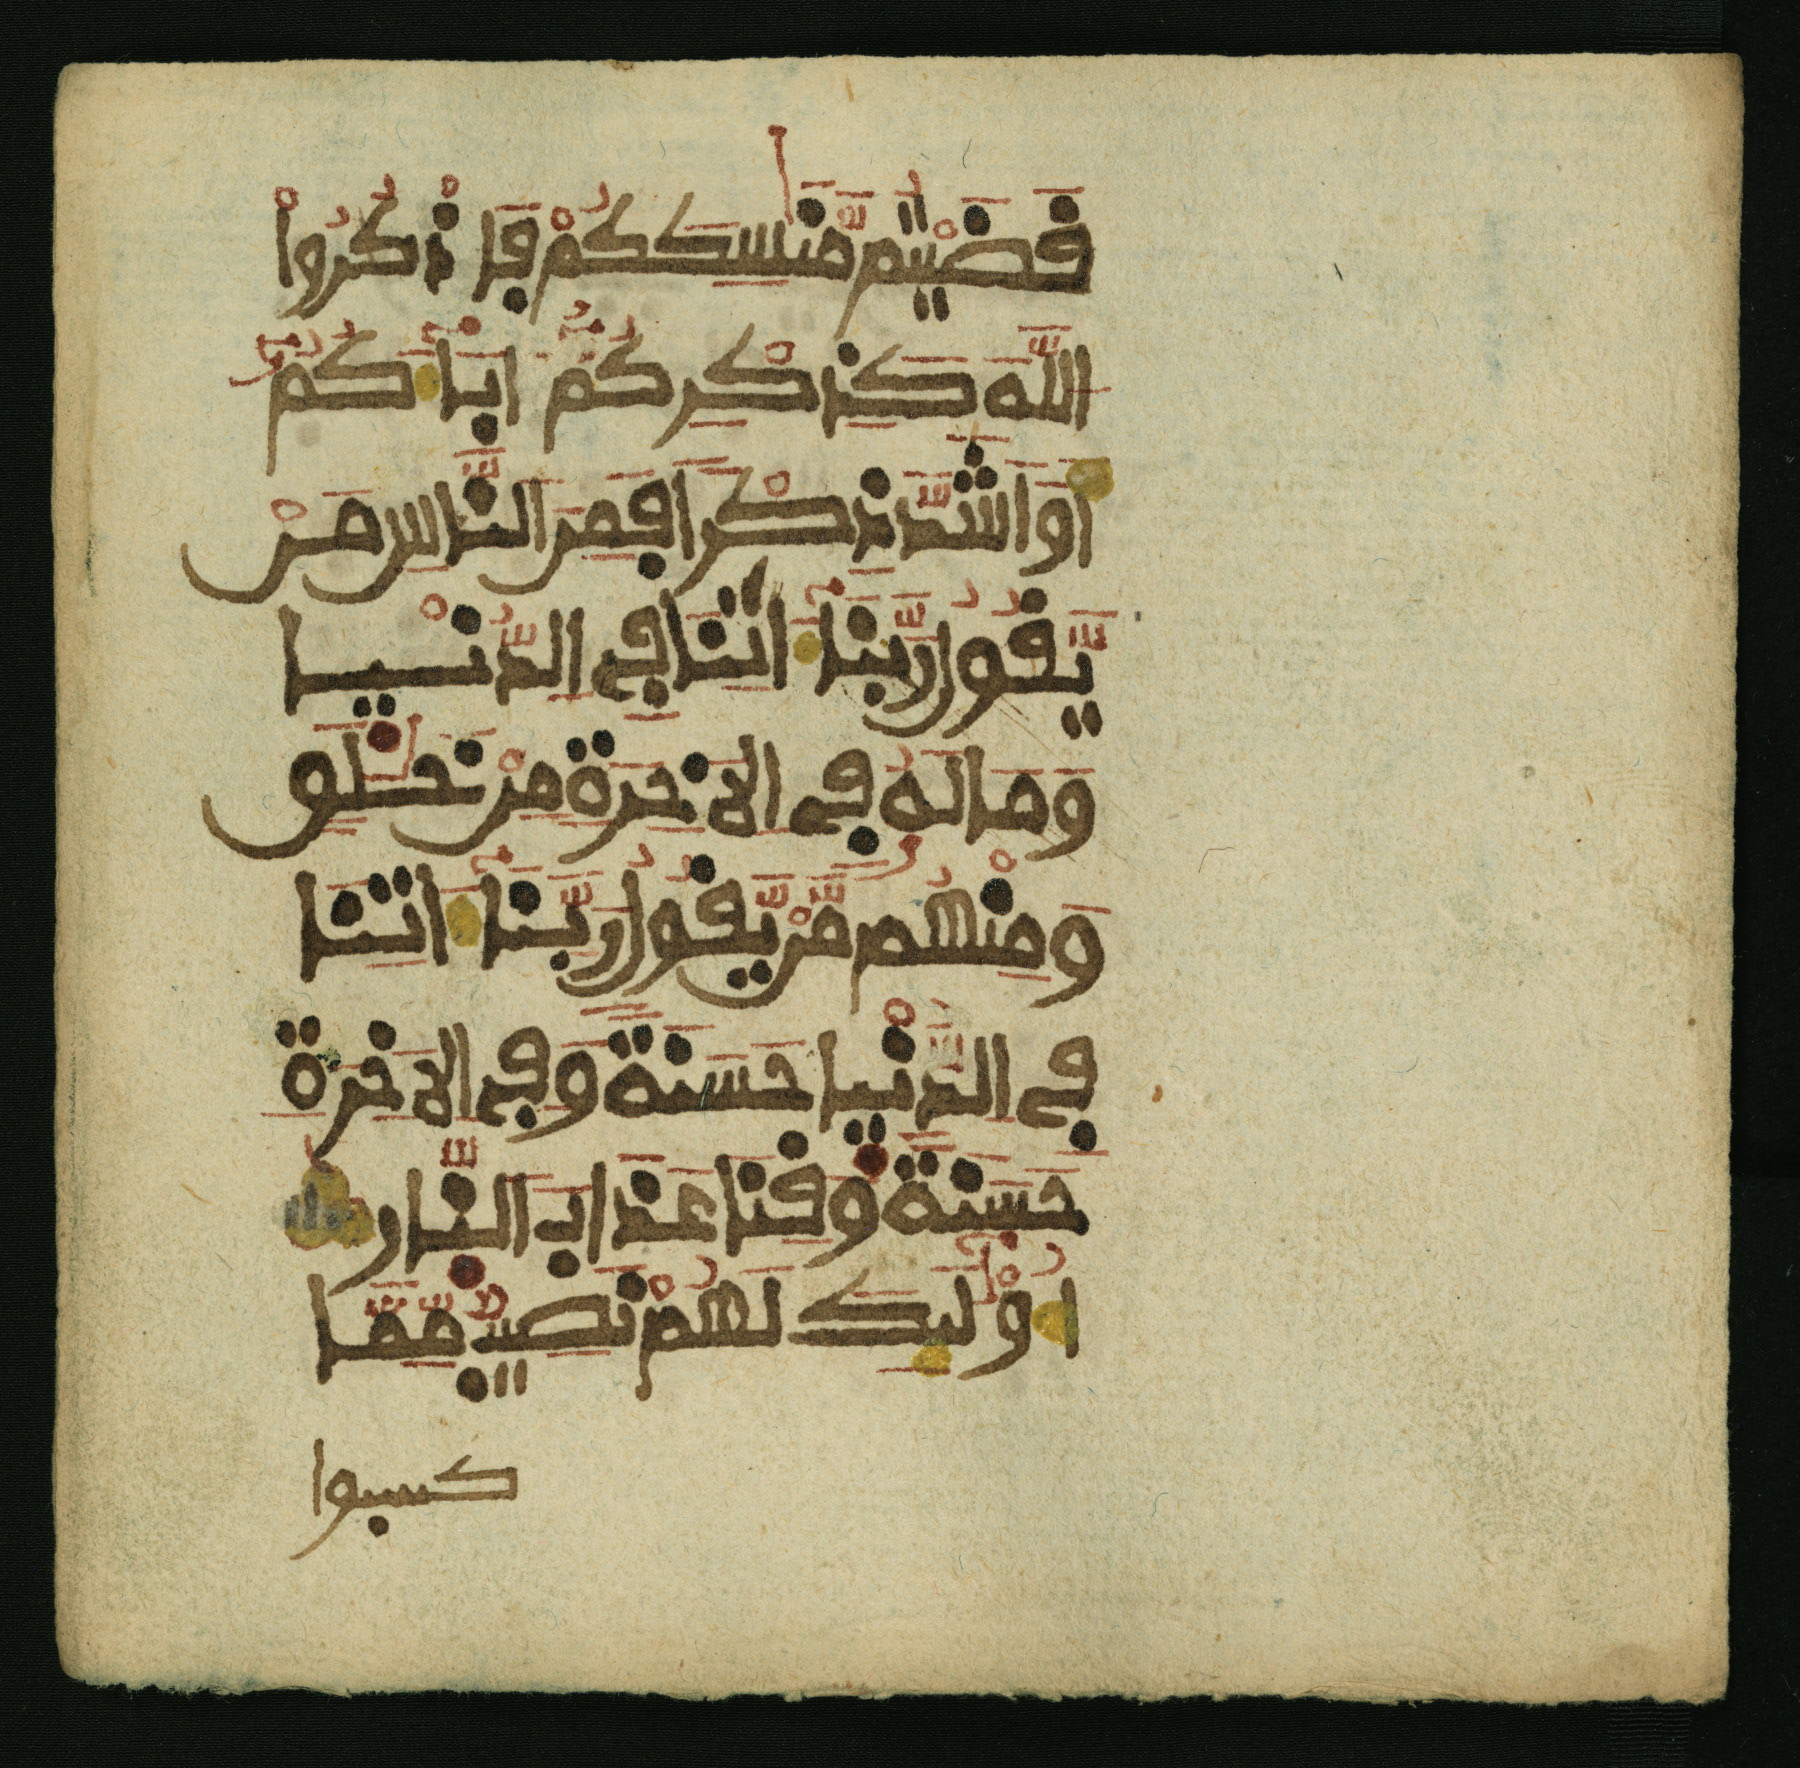 قَضَيْتُم مَّنَٰسِكَكُمْ فَاذْكُرُواْ
اللَّهَ كَذِكْرِكُمُۥٓ ءَابَآءَكُمُۥٓ
أَوَ اَشَدَّ ذِكْرًا فَمِنَ النَّاسِ مَنْ
يَّقُولُ رَبَّنَآ ءَاتِنَا فِى الدُّنْيَا
وَمَا لَهُۥ فِى الَاخِرَةِ مِنْ خَلَٰقٍ
وَمِنْهُم مَّنْ يَّقُولُ رَبَّنَآ ءَاتِنَا
فِى الدُّنْيَا حَسَنَةً وَفِى الَاخِرَةِ
حَسَنَةً وَقِنَا عَذَابَ النَّارِ
أُوْلَٰٓئِكَ لَهُمْ نَصِيبٌ مِّمَّا
كسبوا